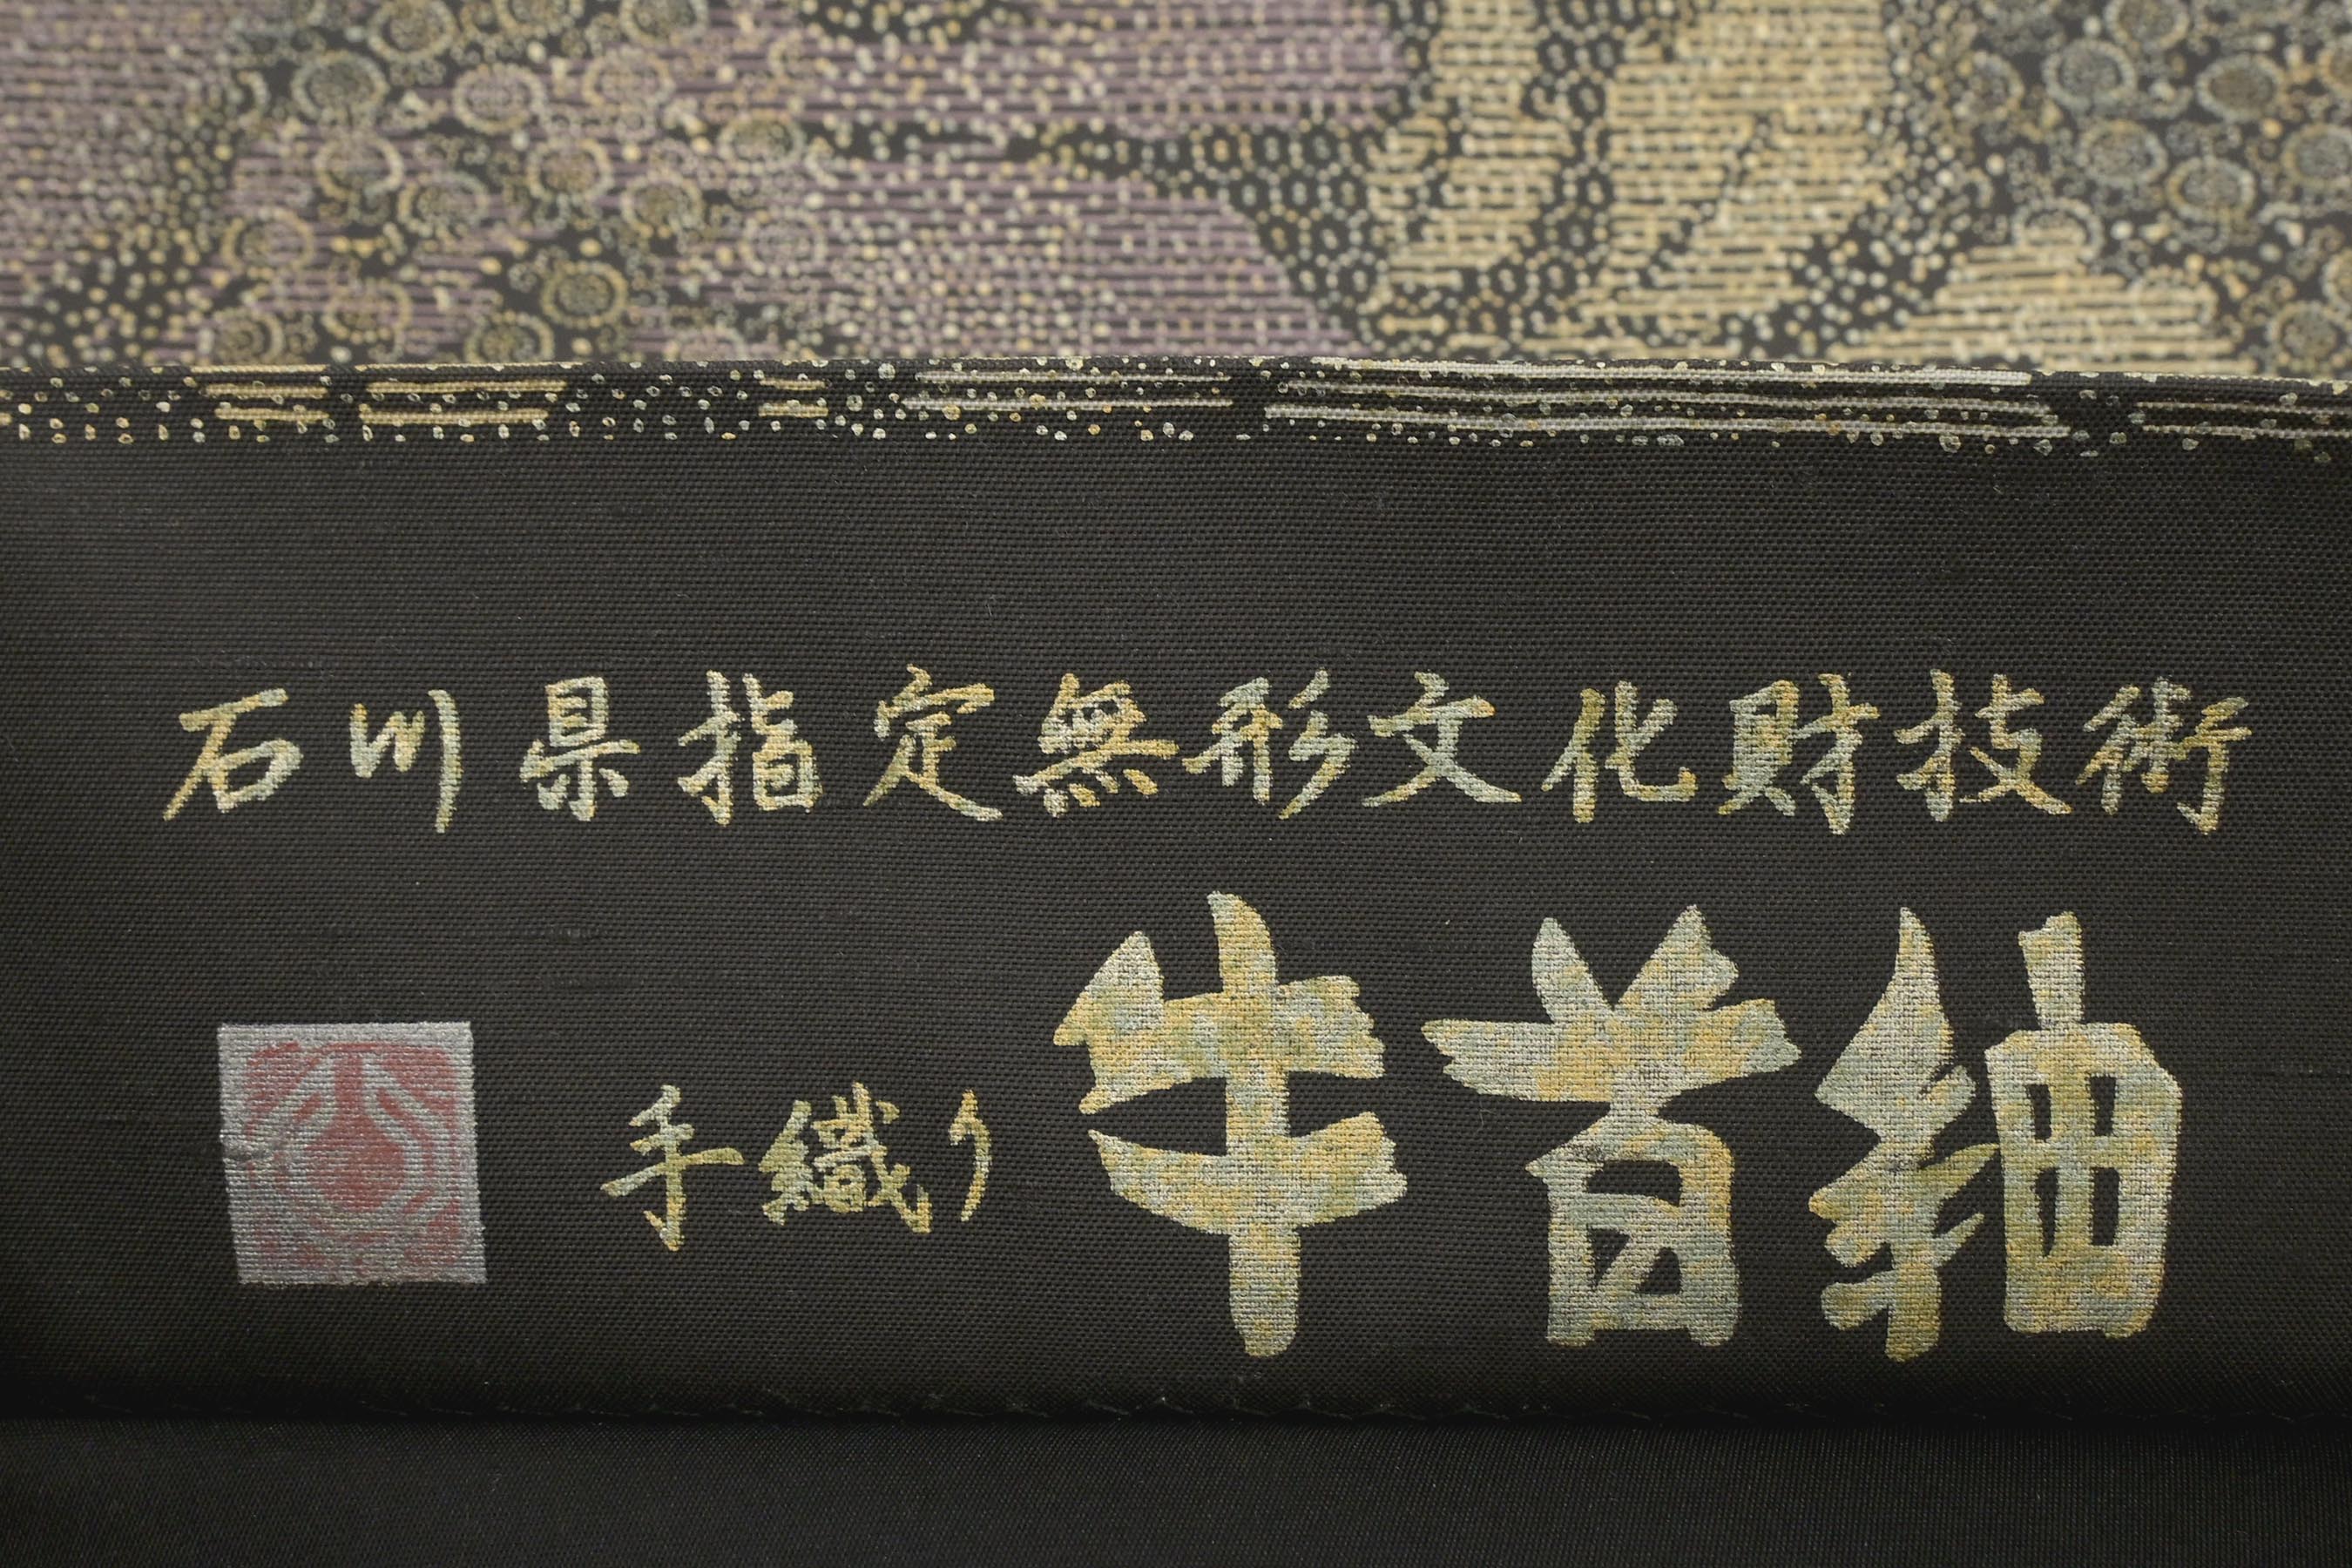 石川県指定無形文化財技術
手織り 牛首紬